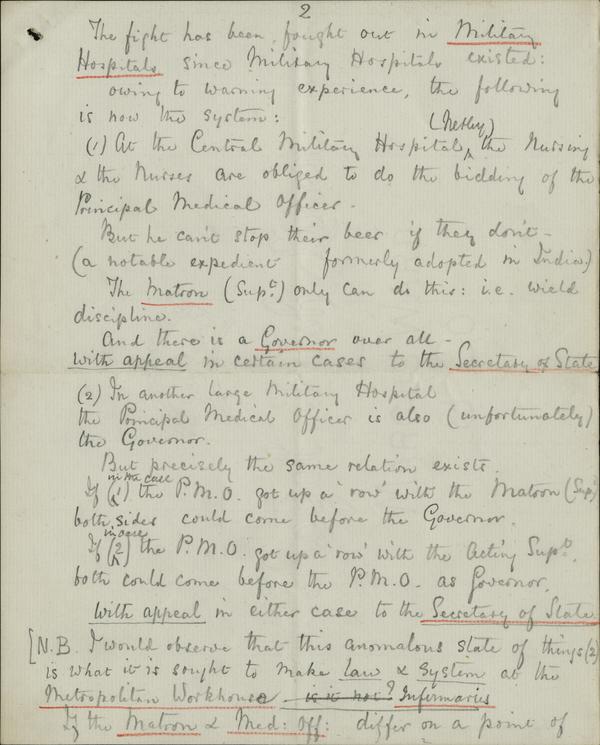 2
The fight has been fought out in Military
Hospitals since Military Hospitals existed:
owing to warning experience, the following
is now the system:
(1) At the Central Military Hospital, (Netley) the Nursing
& the Nurses are obliged to do the bidding of the
Principal Medical Officer.
But he can't stop their beer if they don't -
(a notable expedient formerly adopted in India.)
The Matron (Supt.) only can do this: i.e. wield
discipline.
And there is a Governor over all -
with appeal in certain cases to the Secretary of State
(2) In another large Military Hospital
the Principal Medical Officer is also (unfortunately)
the Governor.
But precisely the same relation exists.
If in the case (1) the P.M.O. got up a 'row' with the Matron (Supt)
both sides could come before the Governor.
If in case (2) the P.M.O. got up a 'row' with the Acting Supt.
both could come before the P.M.O. as Governor.
With appeal in either case to the Secretary of State
[N.B. I would observe that this anomalous state of things (2)
is what it is sought to make law & system at the
Metropolitan Workhouse is it not? Infirmaries
If the Matron & Med: Off: differ on a point of